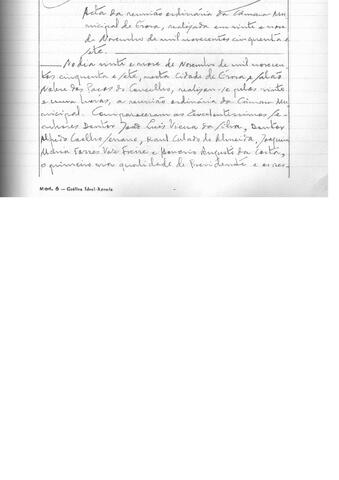 Acta da reunião ordinária da Câmara Mu-
nicipal de Évora, realizada em vinte e nove
de Novembro de mil novecentos cinquenta e
sete.
No dia vinte e nove de Novembro de mil novecen-
tos cinquenta e sete, nesta Cidade de Évora e Salão
Nobre dos Paços do Concelho, realizou-se pelas vinte
e uma horas, a reunião ordinária da Câmara Mu-
nicipal. Compareceram os Excelentíssimos Se-
nhores Doutor João Luís Vieira da Silva, Doutor
Alfredo Coelho Serrano, Raul Calado de Almeida, Joaquim
Maria Torres Vaz Freire e Augusto da Costa,
o primeiro na qualidade de Presidente e os res-
Mod. 6 — Gráfica Ideal-Águeda